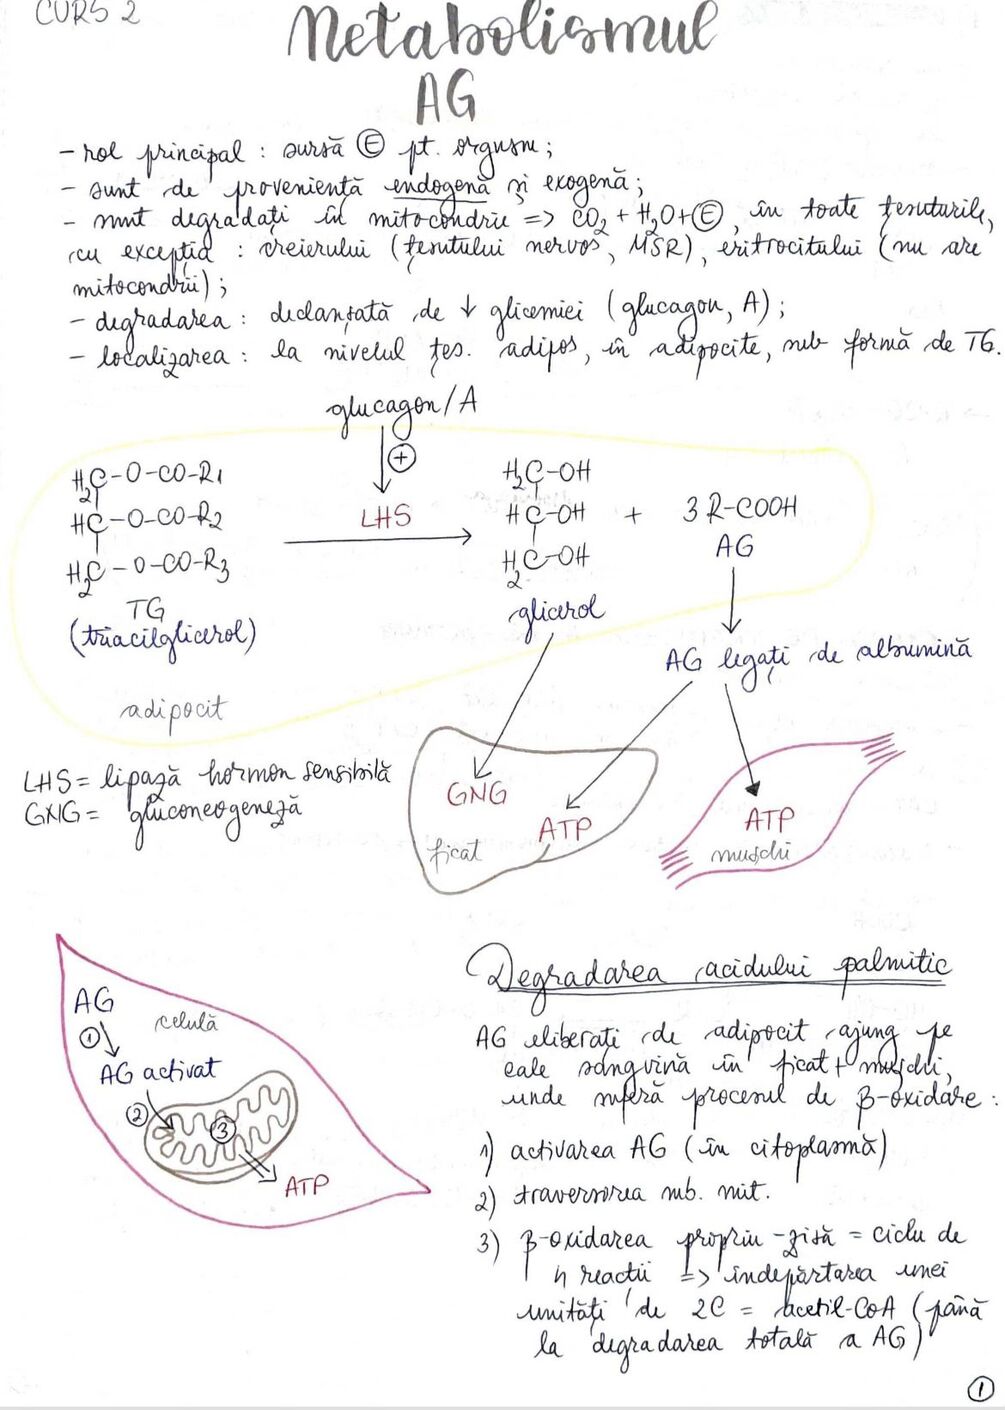 CURS 2
Metabolismul
AG
- rol principal : sursă Ⓔ pt. orgnsm ;
- sunt de proveniență endogenă și exogenă ;
- sunt degradați în mitocondrie => CO2 + H2O + Ⓔ, în toate țesuturile,
cu excepția : creierului (țesutului nervos, MSR), eritrocitului (nu are
mitocondrii) ;
- degradarea : declanșată de ↓ glicemiei (glucagon, A) ;
- localizarea : la nivelul țes. adipos, în adipocite, sub formă de TG.
glucagon/A
⊕
H2C-O-CO-R1
HC-O-CO-R2
H2C-O-CO-R3
TG
(triacilglicerol)
LHS
H2C-OH
HC-OH
H2C-OH
glicerol
+
3 R-COOH
AG
AG legați de albumină
adipocit
LHS = lipază hormon sensibilă
GNG = gluconeogeneză
GNG
ATP
ficat
ATP
mușchi
AG
celulă
①
AG activat
②
③
ATP
Degradarea acidului palmitic
AG eliberați de adipocit ajung pe
cale sangvină în ficat + mușchi,
unde suferă procesul de β-oxidare :
1) activarea AG (în citoplasmă)
2) traversarea mb. mit.
3) β-oxidarea propriu-zisă = ciclu de
4 reactii => îndepărtarea unei
unități de 2C = acetil-CoA (până
la degradarea totală a AG)
①